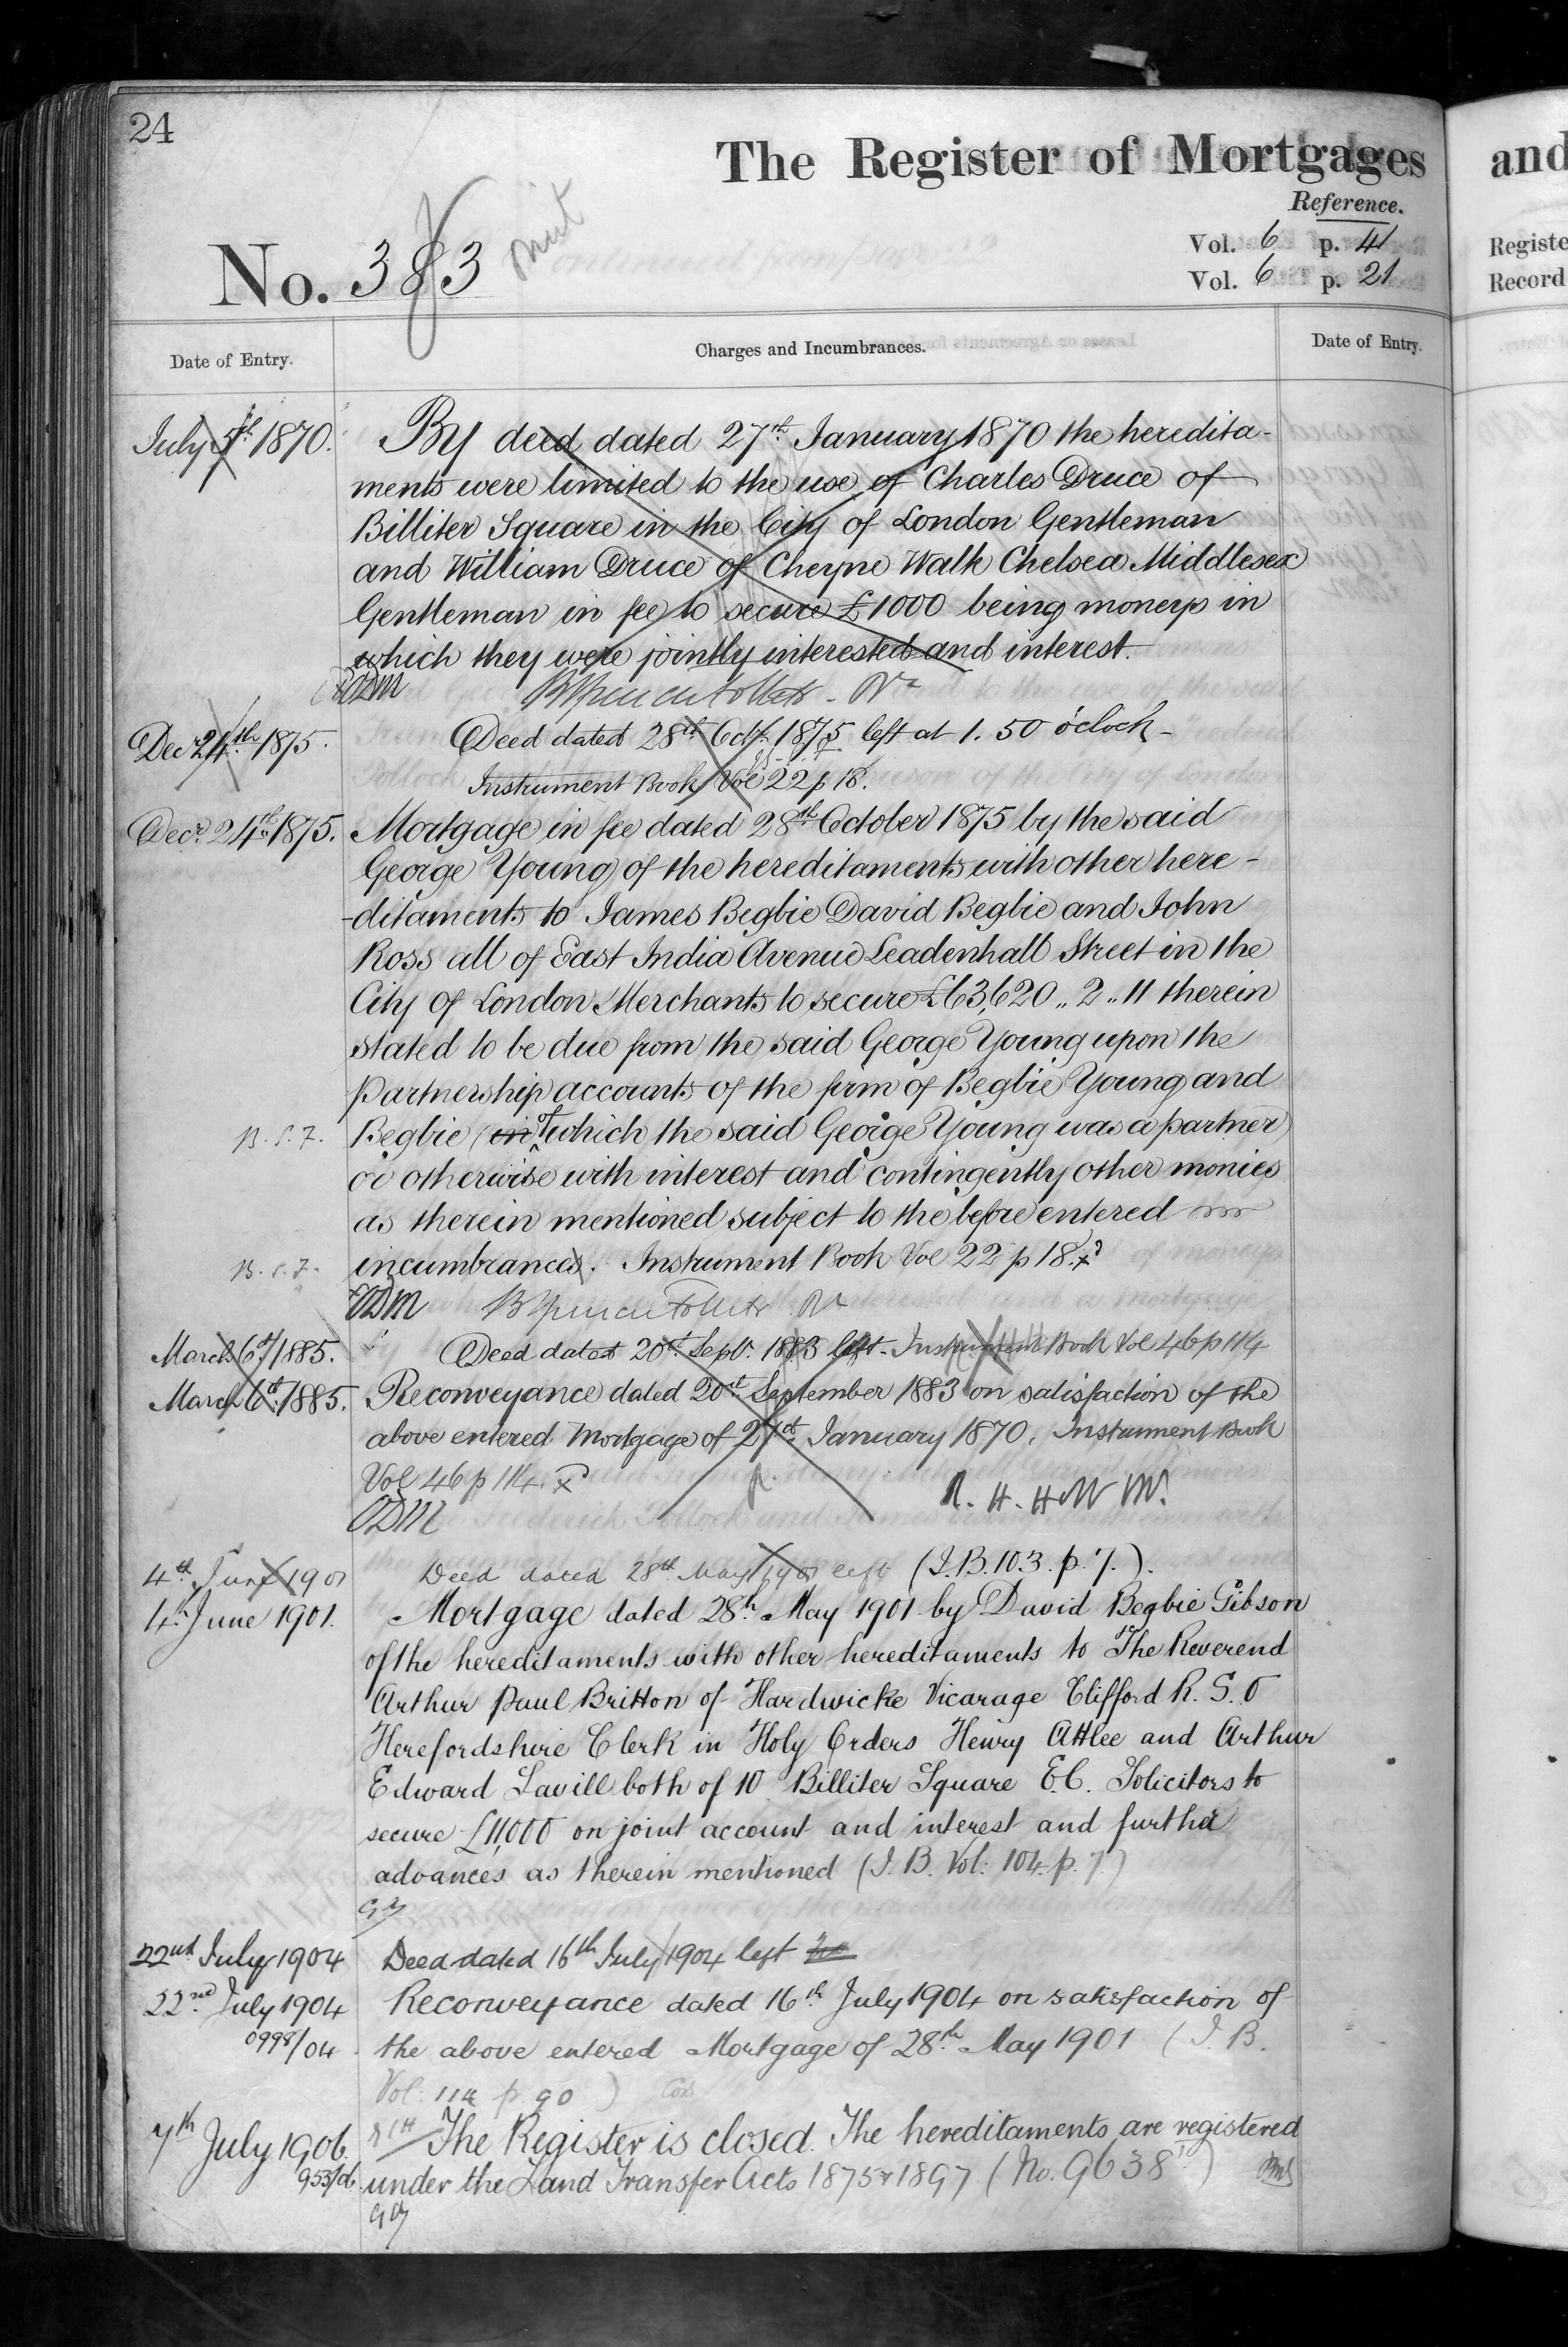 24
The Register of Mortgages
and
Reference.
Vol. 6 p. 41
Registe
No. 383
Vol. 6 p. 21
Record
Date of Entry.
Charges and Incumbrances.
Date of Entry.
July 5th 1870. By deed dated 27th January 1870 the heredita-
ments were limited to the use of Charles Druce of
Billiter Square in the City of London Gentleman
and William Druce of Cheyne Walk Chelsea Middlesex
Gentleman in fee to secure £1000 being moneys in
which they were jointly interested and interest.
ODM
Decr 24th 1875. Deed dated 28th Octr 1875 left at 1.50 o'clock -
Instrument Book Vol 22 p 18.
Decr. 24th 1875. Mortgage in fee dated 28th October 1875 by the said
George Young of the hereditaments with other here-
-ditaments to James Begbie David Begbie and John
Ross all of East India Avenue Leadenhall Street in the
City of London Merchants to secure £63,620 „ 2 „ 11 therein
stated to be due from the said George Young upon the
partnership accounts of the firm of Begbie Young and
B.S.F. Begbie (in of which the said George Young was a partner)
or otherwise with interest and contingently other monies
as therein mentioned subject to the before entered
B.S.F. incumbrances. Instrument Book Vol 22 p 18.
ODM
March 6th/1885. Deed dated 20th Sept. 1883 left - Instrument Book Vol 46 p 114
March 6th/1885. Reconveyance dated 20th September 1883 on satisfaction of the
above entered Mortgage of 27th January 1870. Instrument Book
Vol 46 p 114.
ODM
4th June 1901 Deed dated 28th May 1901 left (I.B. 103. p. 7.).
4th June 1901. Mortgage dated 28th May 1901 by David Begbie Gibson
of the hereditaments with other hereditaments to The Reverend
Arthur Paul Britton of Hardwicke Vicarage Clifford R.S.O
Herefordshire Clerk in Holy Orders Henry Attlee and Arthur
Edward Savill both of 10 Billiter Square E.C. Solicitors to
secure £11,000 on joint account and interest and further
advances as therein mentioned (I.B. Vol: 104. p. 7)
22nd July 1904 Deed dated 16th July 1904 left
22nd July 1904 Reconveyance dated 16th July 1904 on satisfaction of
0998/04 the above entered Mortgage of 28th May 1901 (I.B.
Vol: 114 p 90)
7th July 1906. The Register is closed. The hereditaments are registered
953/06 under the Land Transfer Acts 1875 & 1897 (No. 9638)